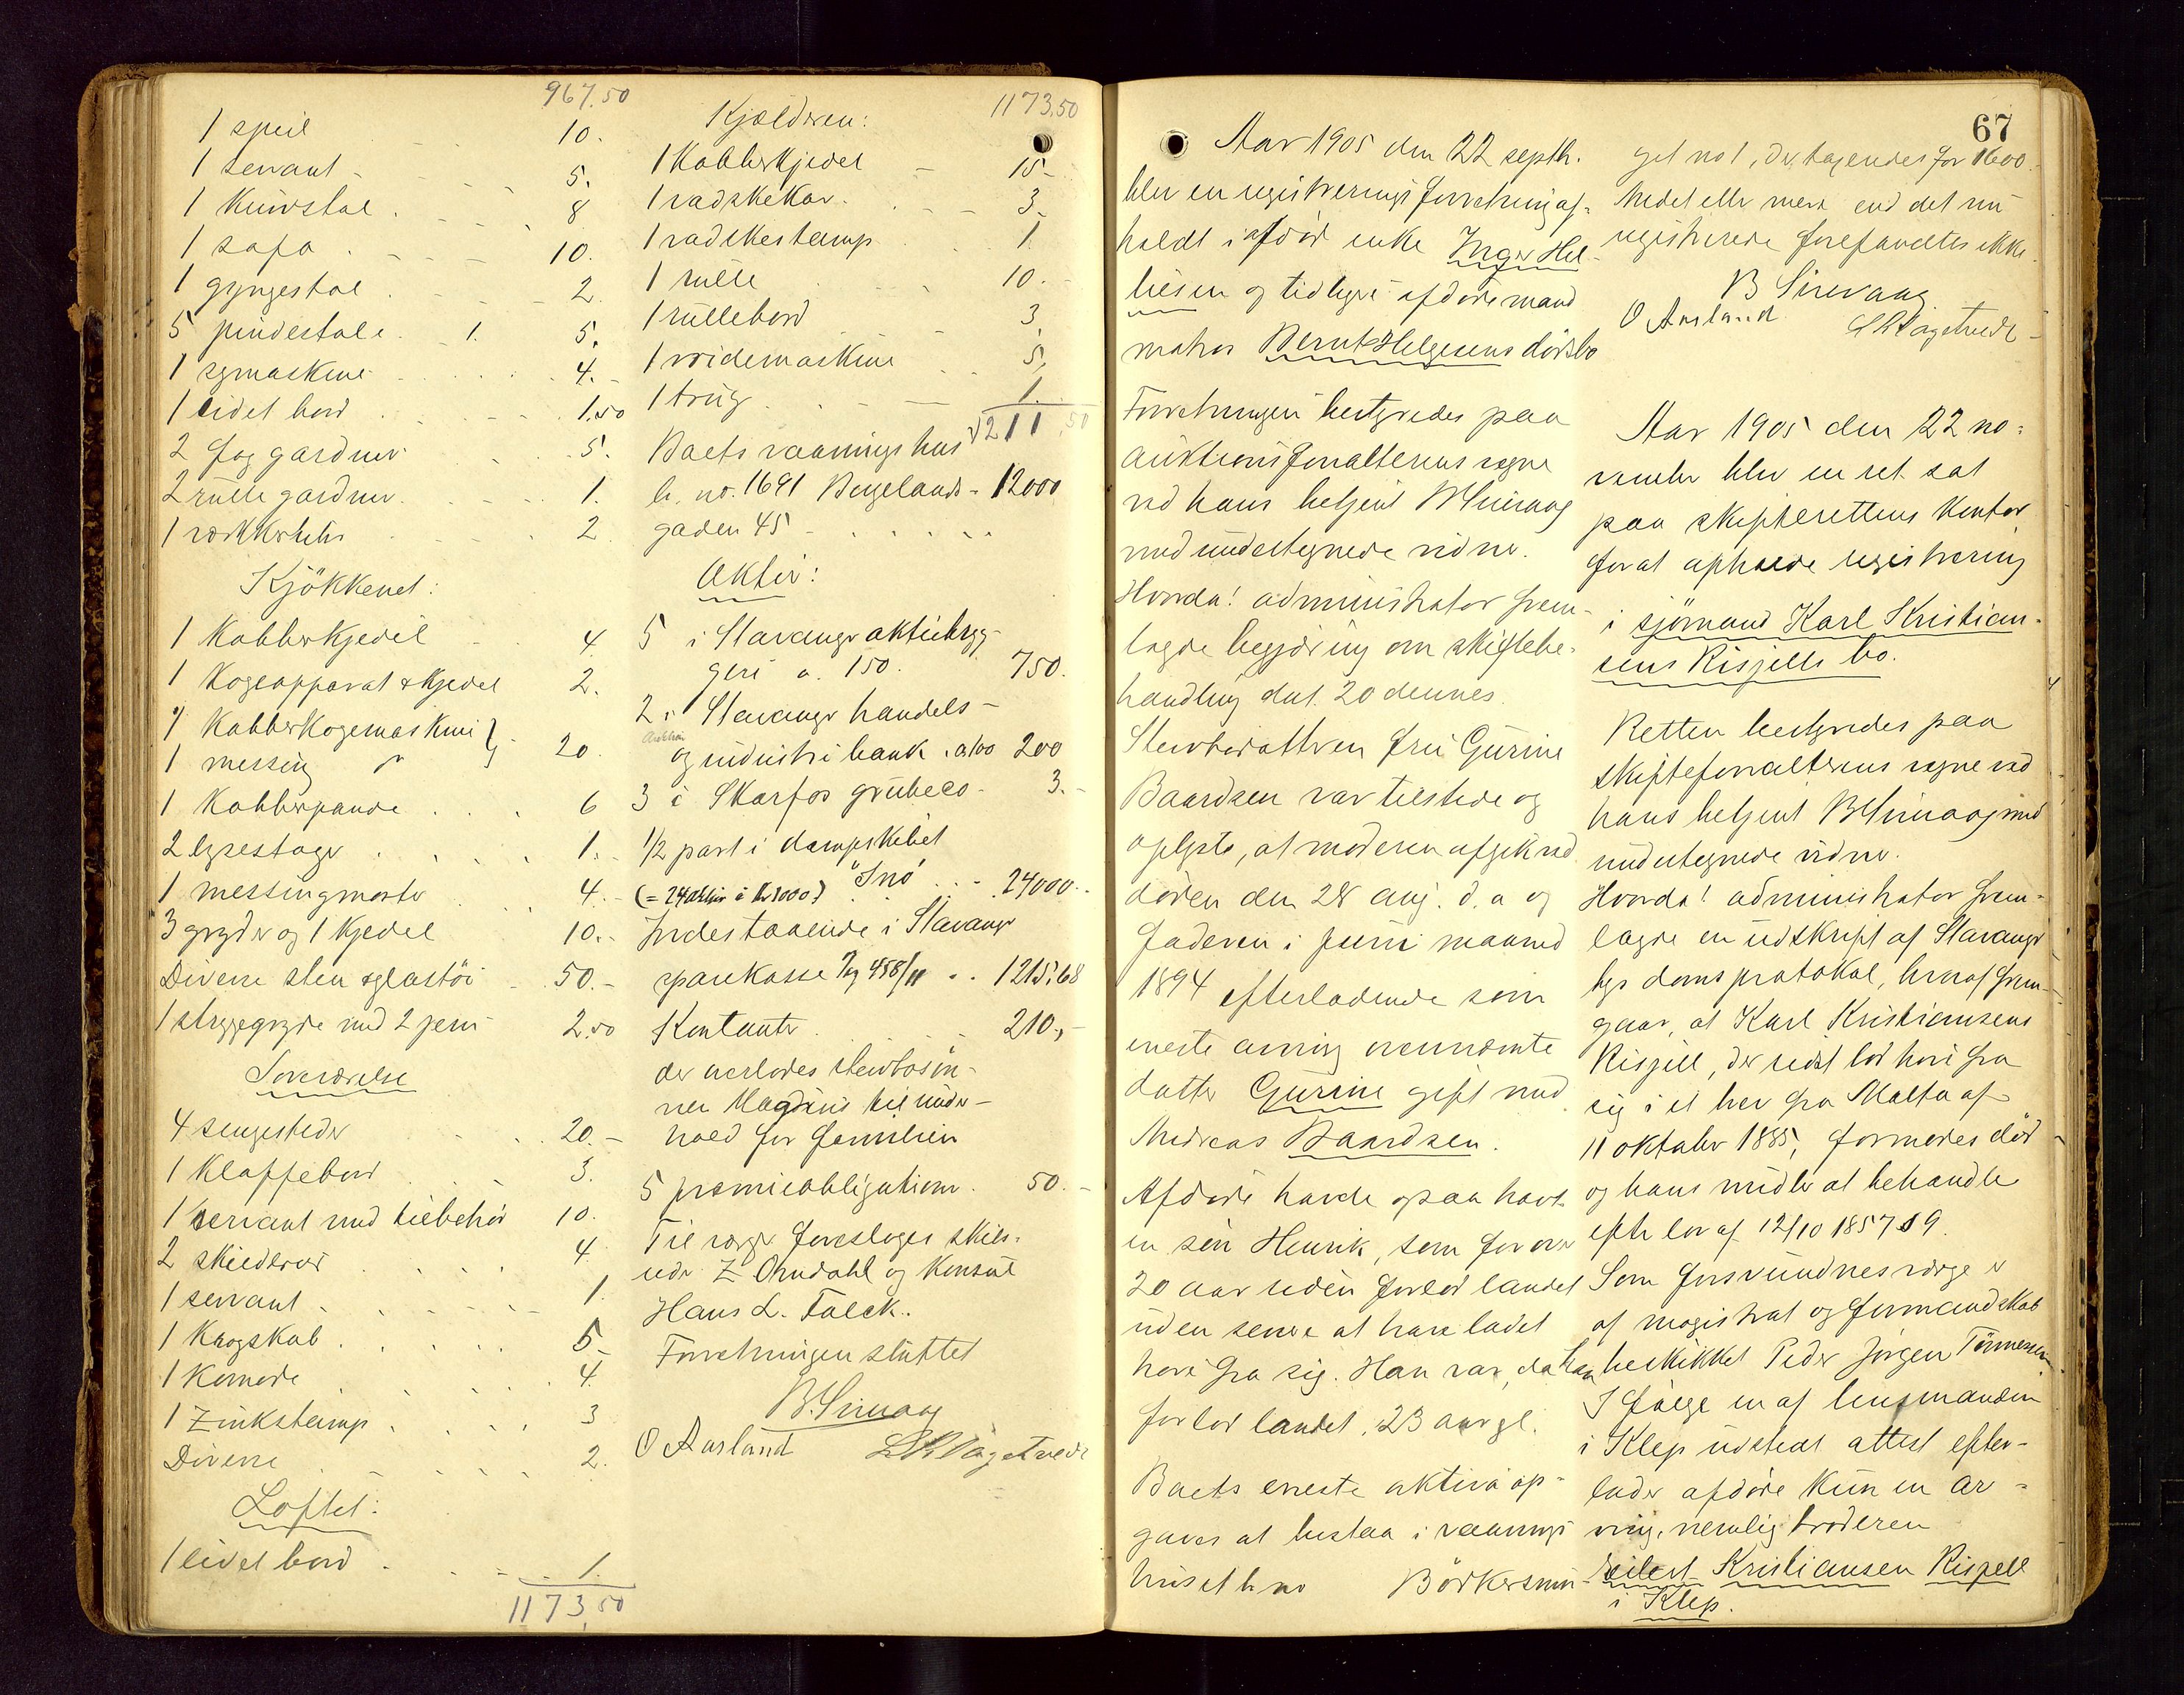 967.50
1 speil 10.
1 servant 5.
1 Kurvstol 8
1 sofa 10.
1 gyngestol 2.
5 pindestole 1. 5.
1 symaskine 4.-
1 lidet bord 1.50
2 fag gardiner 5.
2 rulle gardiner 1.
1 2
Kjökkenet:
1 Kobberkjedel 4
1 Kogeapparat & Kjedel 2.
1 Kobberkogemaskine }
1 messing " } 20.
1 Kobberpande 6
2 lysestager 1.-
1 messingmorter 4.-
3 gryder og 1 Kjedel 10.-
Diverse sten & glastöi 50.-
1 strygegryde med 2 jern 2.50
Soveværelse
4 sengesteder 20.-
1 Klappebord 3.
1 servant med tilbehör 10.
2 skilderier 4
1 servant 1.
1 Krogskab 5
1 Komode 4.
1 Zinkstamp 3
Diverse 2.
Loftet:
1 lidet bord 1.
1173,50
1173,50
Kjelderen:
1 Kobberkjedel 15-
1 vadskekar 3.
1 vadskestamp 1.
1 rulle 10.-
1 rullebord 3.
1 vridemaskine 5.
1 trug 1.
1211,50
Boets vaaningshus
b. no. 1691 Bergelands- 12000
gaden 45
Aktier:
5 i Stavanger aktiebryg-
geri a. 150. 750.
2 i Stavanger handels-
og industribank a. 100 200
3 i Skarfos grubeco- 3.-
1/2 part i dampskibet
(= 24 aktier á Kr 1000) "Snö" 24000.
Indestaaende i Stavanger
sparekasse 458/11 1215.68
Kontanter 210,-
der overlodes stervbosön-
nen Magdinus til under-
hold for familien
5 præmieobligationer 50.-
Til værge foresloges skibs-
reder Z Omdahl og Konsul
Hans L. Falck.
Forretningen sluttet
B Sirevaag
O Aarland L R Vagstvedt
67
Aar 1905 den 22 septb.
blev en registreringsforretning af-
holdt i afdöd enke Inger Hel-
liesen og tidligere afdöde mand
matros Bernt Helgesens dödsbo
Forretningen bestyredes paa
auktionsforvalterens vegne
ved hans betjent B Sirevaag
med undertegnede vidner.
Hvorda! administrator frem-
lagde begjæring om skiftebe-
handling dat. 20 dennes.
Stervbodatteren fru Gurine
Baardsen var tilstede og
oplyste, at moderen afgik ved
döden den 28 aug. d. a og
faderen i juni maaned
1894 efterladende som
eneste arving ovennævnte
datter Gurine gift med
Andreas Baardsen.
Afdöde havde ogsaa havt
en sön Henrik, som for over
20 aar siden forlod landet
uden senere at have ladet
höre fra sig. Han var, da han
forlod landet, 23 aar gl.
Boets eneste aktiva op-
gaves at bestaa i vaanings
huset b. no Börkersmu-
get no 1, der toges for 1600.
Andet eller mere end det nu
registrerede forefandtes ikke.
B Sirevaag
O Aarland L R Vagstvedt
Aar 1905 den 22 no-
vember blev en ret sat
paa skifterettens Kontor
for at afholde registrering
i sjömand Karl Kristian-
sens Risjells bo.
Retten bestyredes paa
skifteforvalterens vegne ved
hans betjent B Sirevaag med
undertegnede vidner.
Hvorda! administrator frem-
lagde en udskrift af Stavanger
bys domsprotokol, hvoraf frem-
gaar, at Karl Kristiansens
Risjell, der sidst lod höre fra
sig i et brev fra Malta af
11 oktober 1885, formodes död
og hans midler at behandle
efter lov af 12/10 1857 § 9.
Som forsvundnes værge er
af magistrat og formandskab
beskikket Peder Jörgen Tönnesen
I fölge en af lensmanden
i Klep udstedt attest efter-
lader afdöde kun en ar-
ving, nemlig broderen
Eilert Kristiansen Risjell
i Klep.